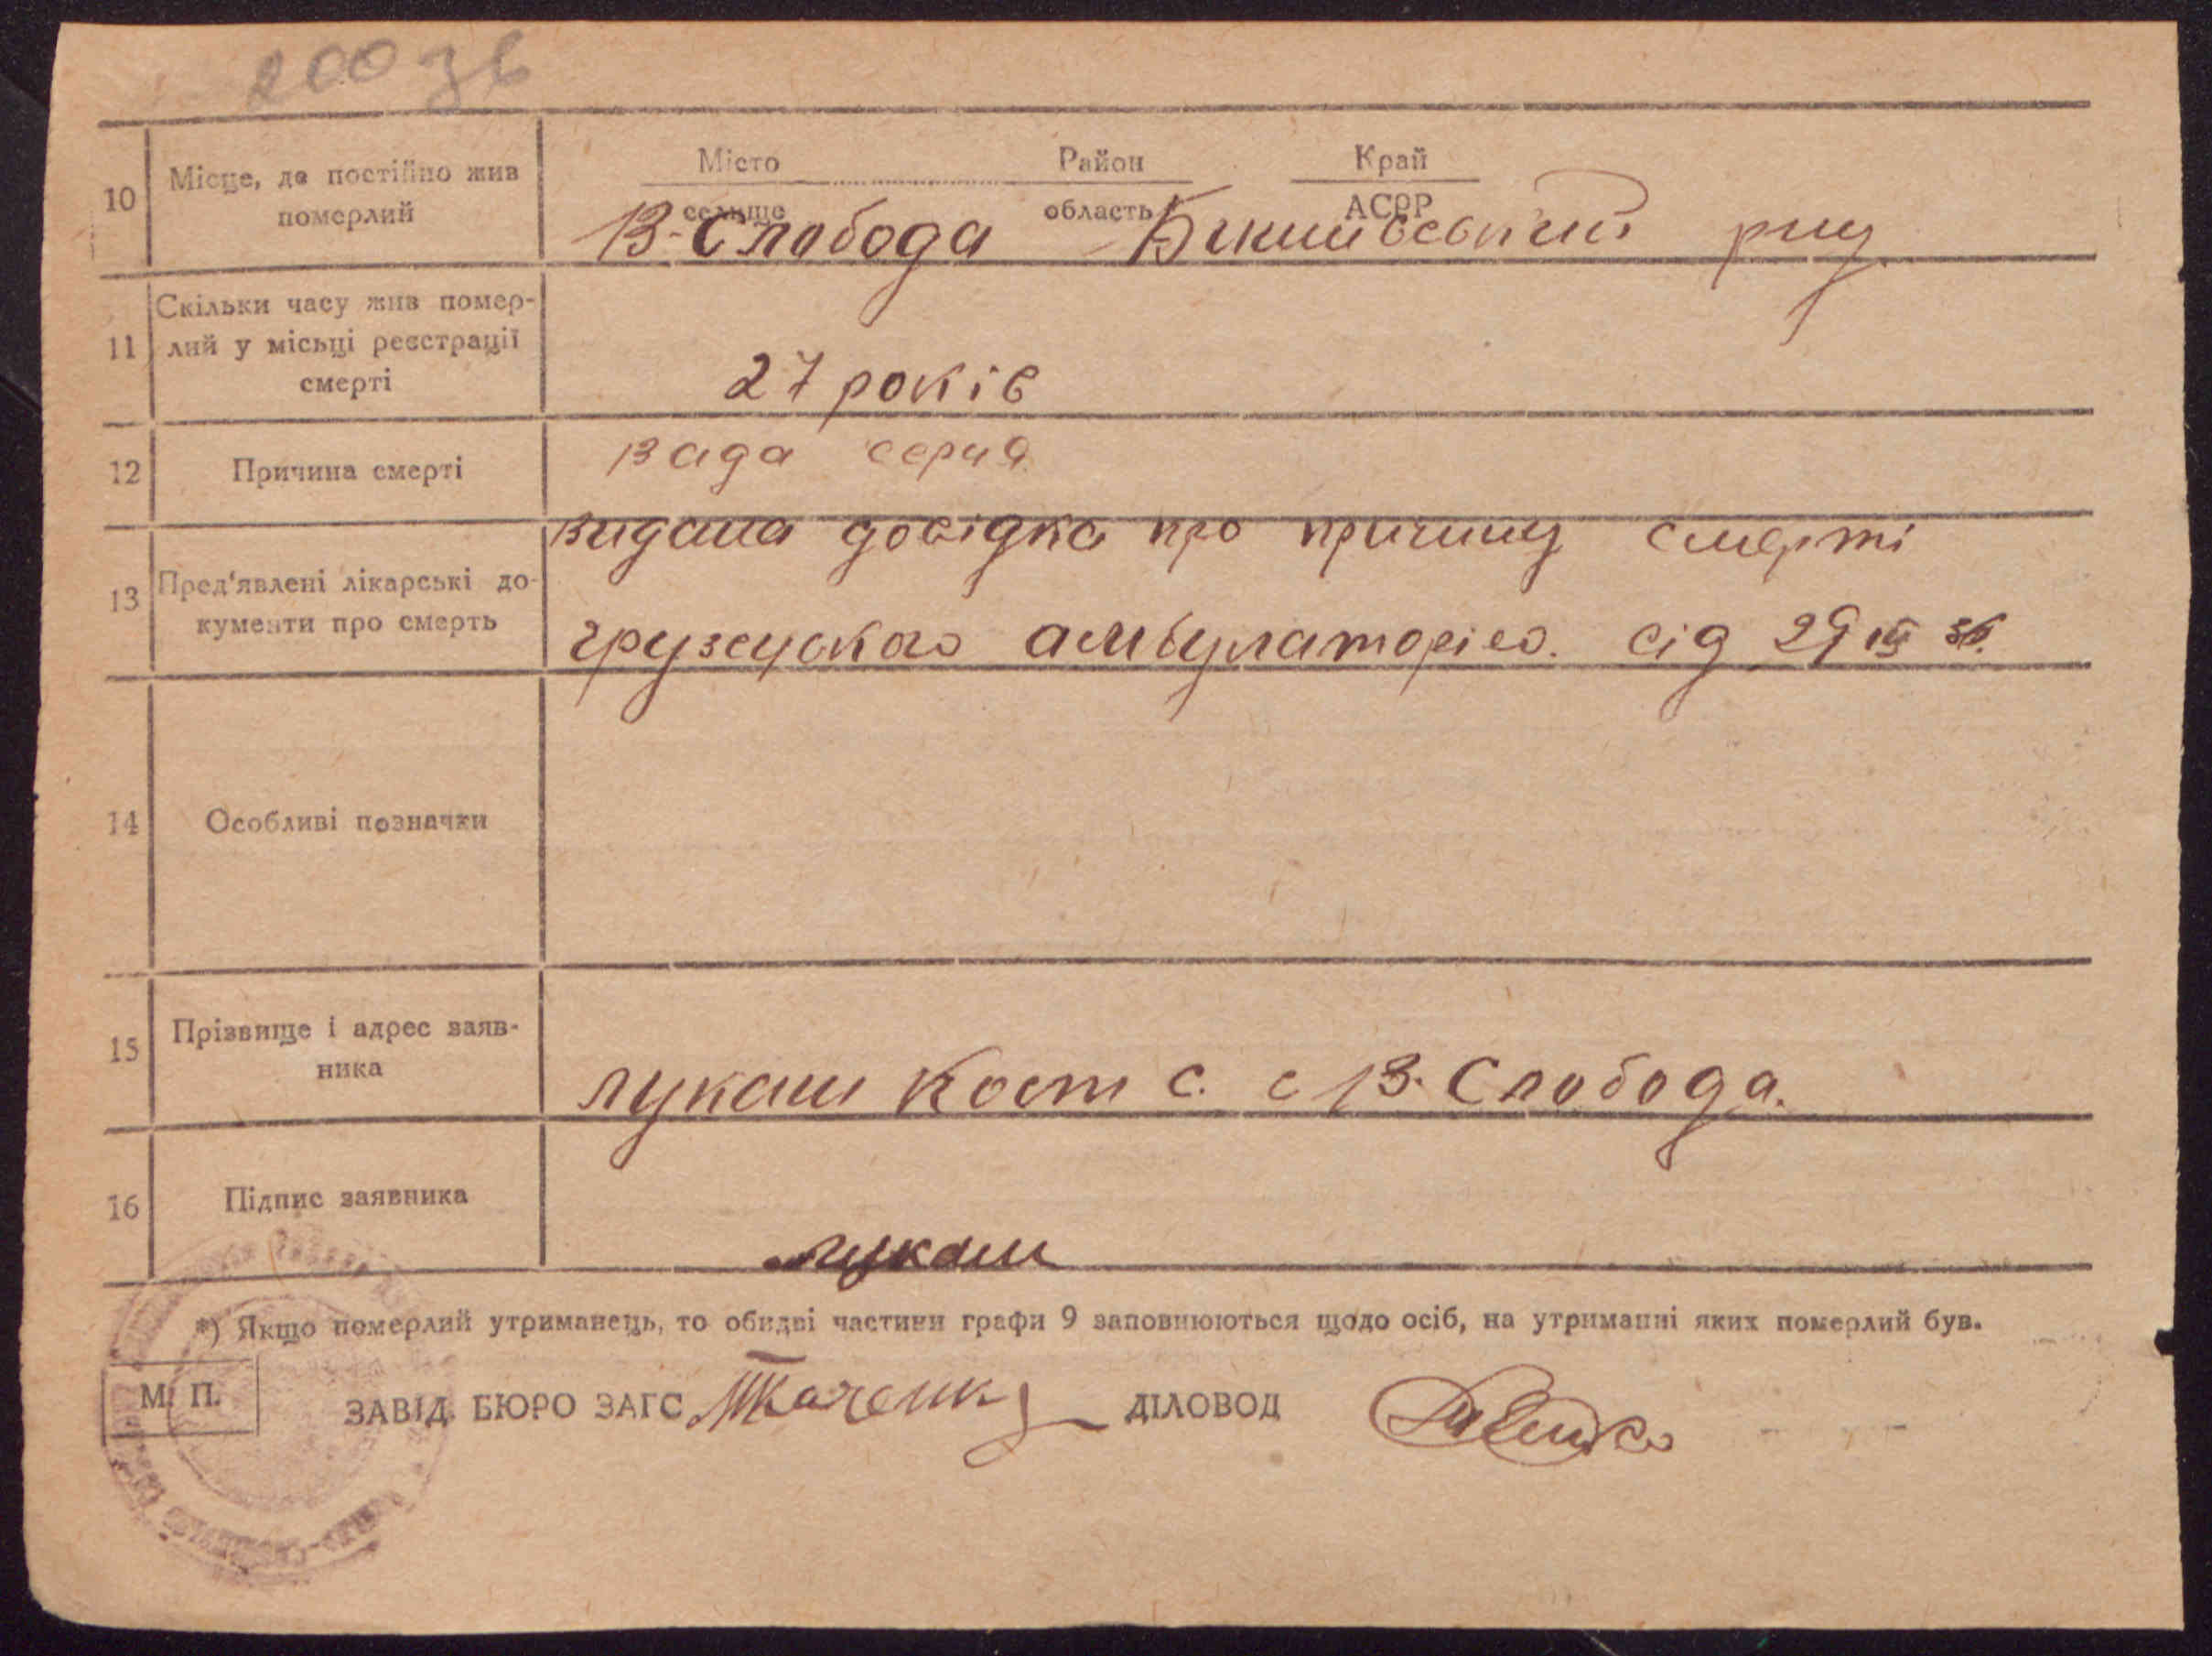 200 зв
Місто Район Край
селище область АСРР
10 Місце, де постійно жив
померлий
В-Слобода
11 Скільки часу жив помер-
лий у місьці реєстрації
смерті
27 років
12 Причина смерті
вада серця
13 Пред'явлені лікарські до-
кументи про смерть
видана довідка про причину смерті
амбулаторією. від 29
14 Особливі позначки
15 Прізвище і адрес заяв-
ника
Лукаш Кост С. с В. Слобода.
16 Підпис заявника
Лукаш
*) Якщо померлий утриманець, то обидві частини графи 9 заповнюються щодо осіб, на утриманні яких померлий був.
М. П.
ЗАВІД. БЮРО ЗАГС Ткаченк ДІЛОВОД